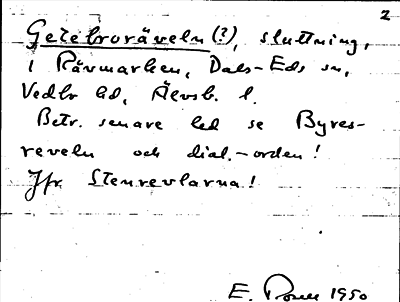 2
Getebroräveln (?), sluttning,
i Rävmarken, Dals-Eds sn,
Vedbo hd, Älvsb. l.
Betr. senare led se Byres-
reveln och dial.-orden!
Jfr Stenrevlarna!
E. 1950